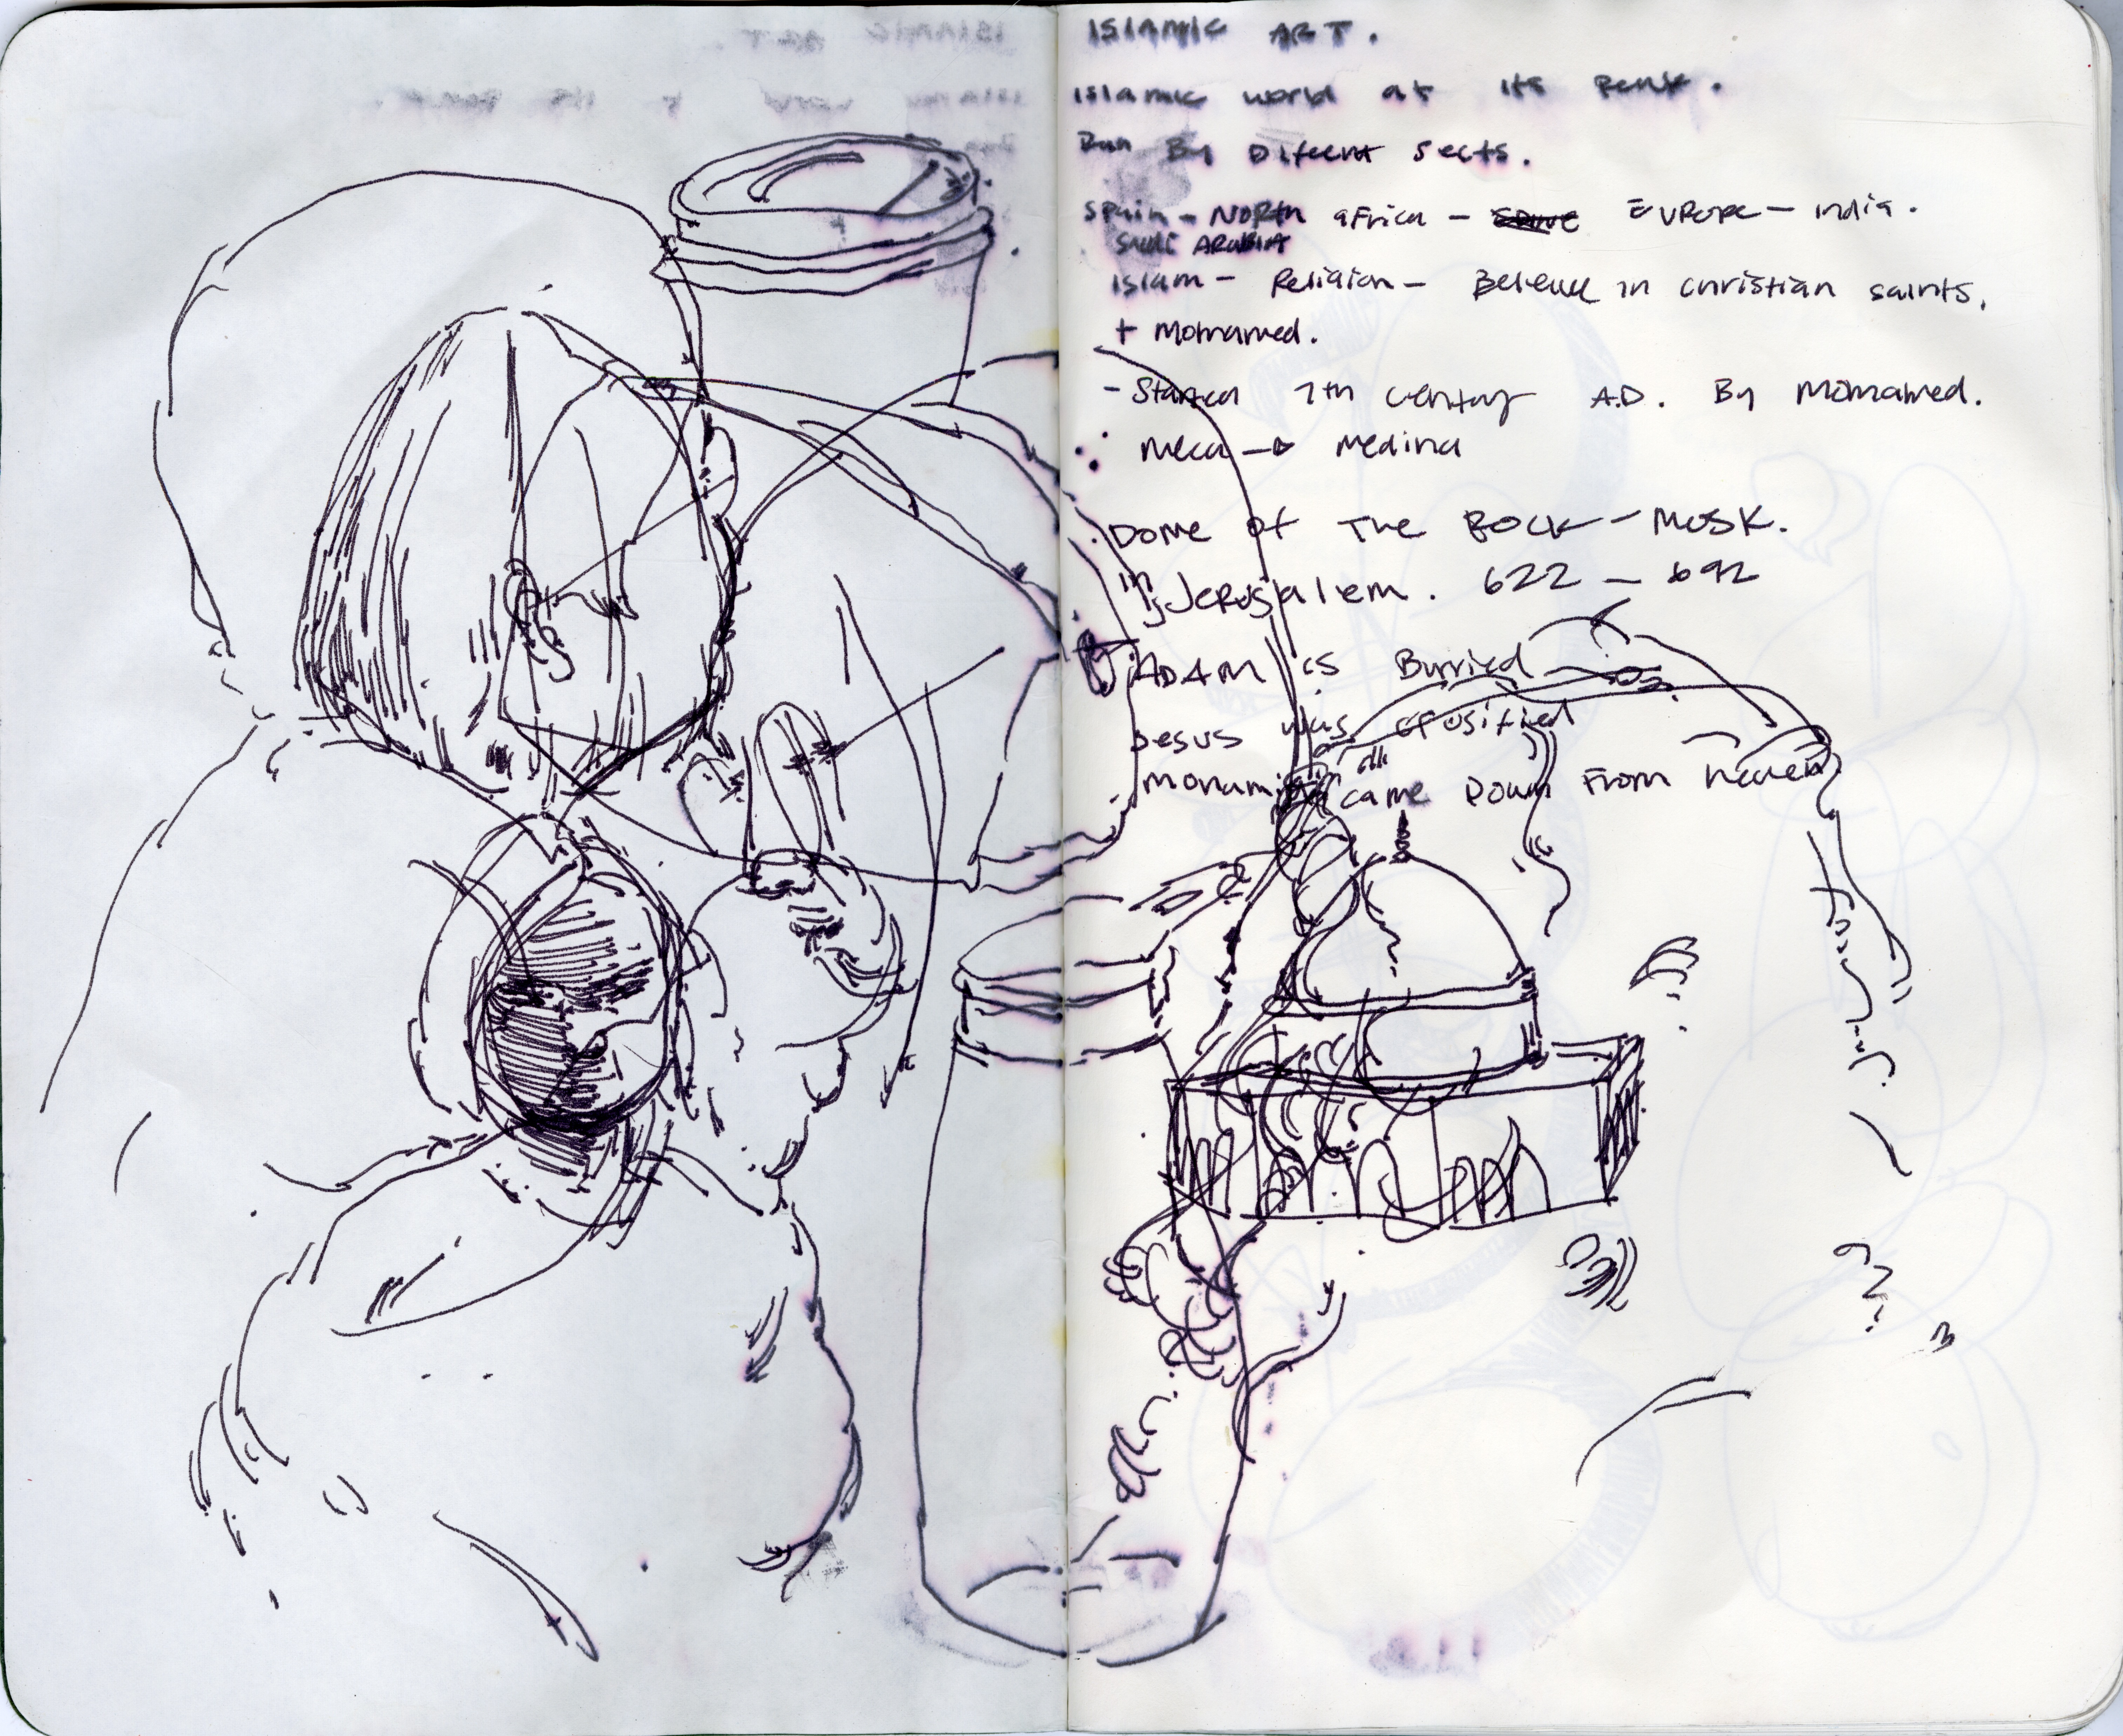 ISLAMIC ART.
Islamic world at its Peak.
Run By Diferent Sects.
Spain - North africa - Europe - india.
Saudi ARABIA
Islam - Religion - Beleive in christian saints,
+ Mohamed.
- Started 7th century A.D. By Mohamed.
Meca → Medina
Dome of The Rock - Mosk.
in Jerusalem. 622 - 692
ADAM is Burried
Jesus was crusified
came Down From heaven